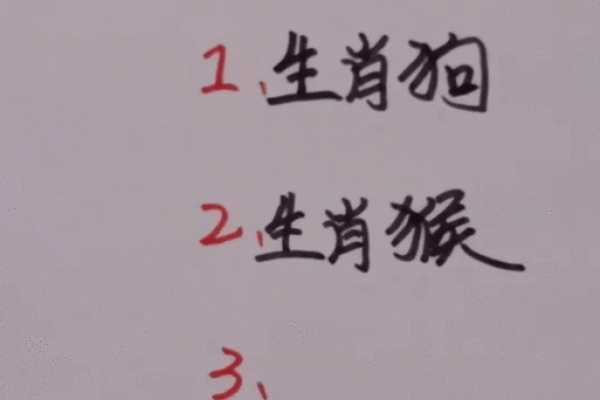 1、生肖狗
2、生肖猴
3、